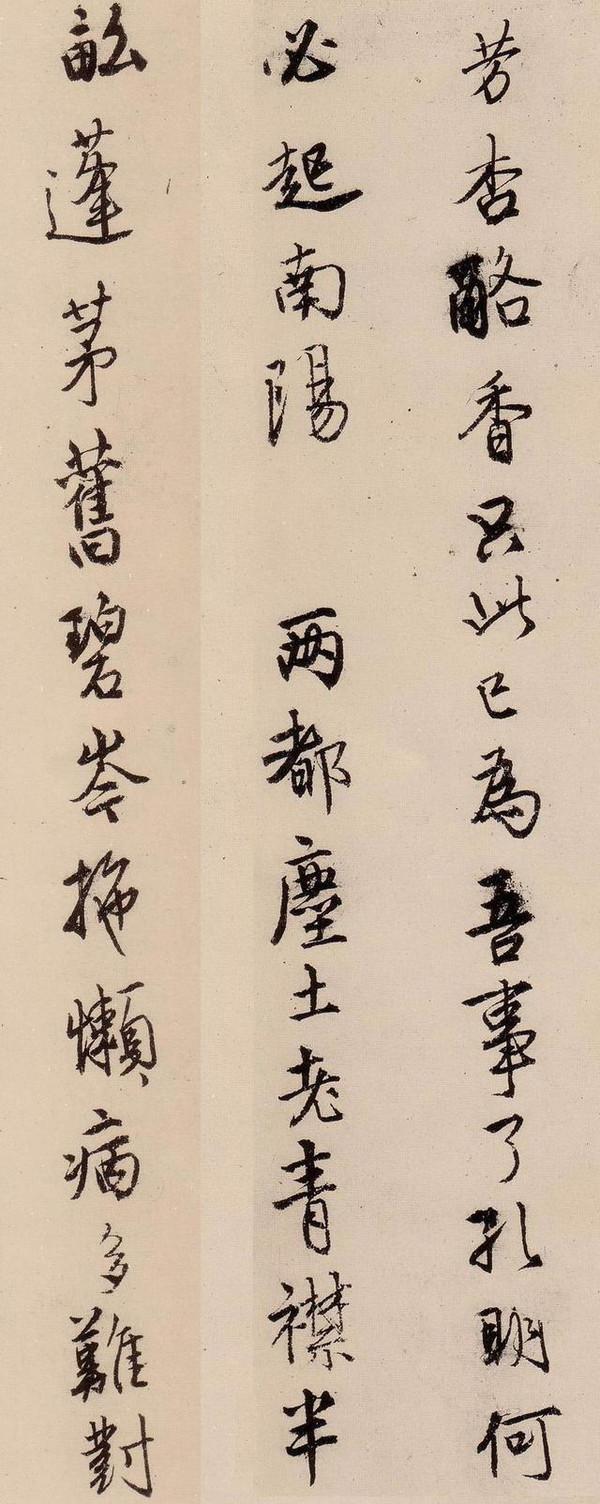 芳杏酪香只此已為吾事了孔明何
必起南陽　两都塵土老青襟半
畝蓬茅舊碧岑拖懶病多難對